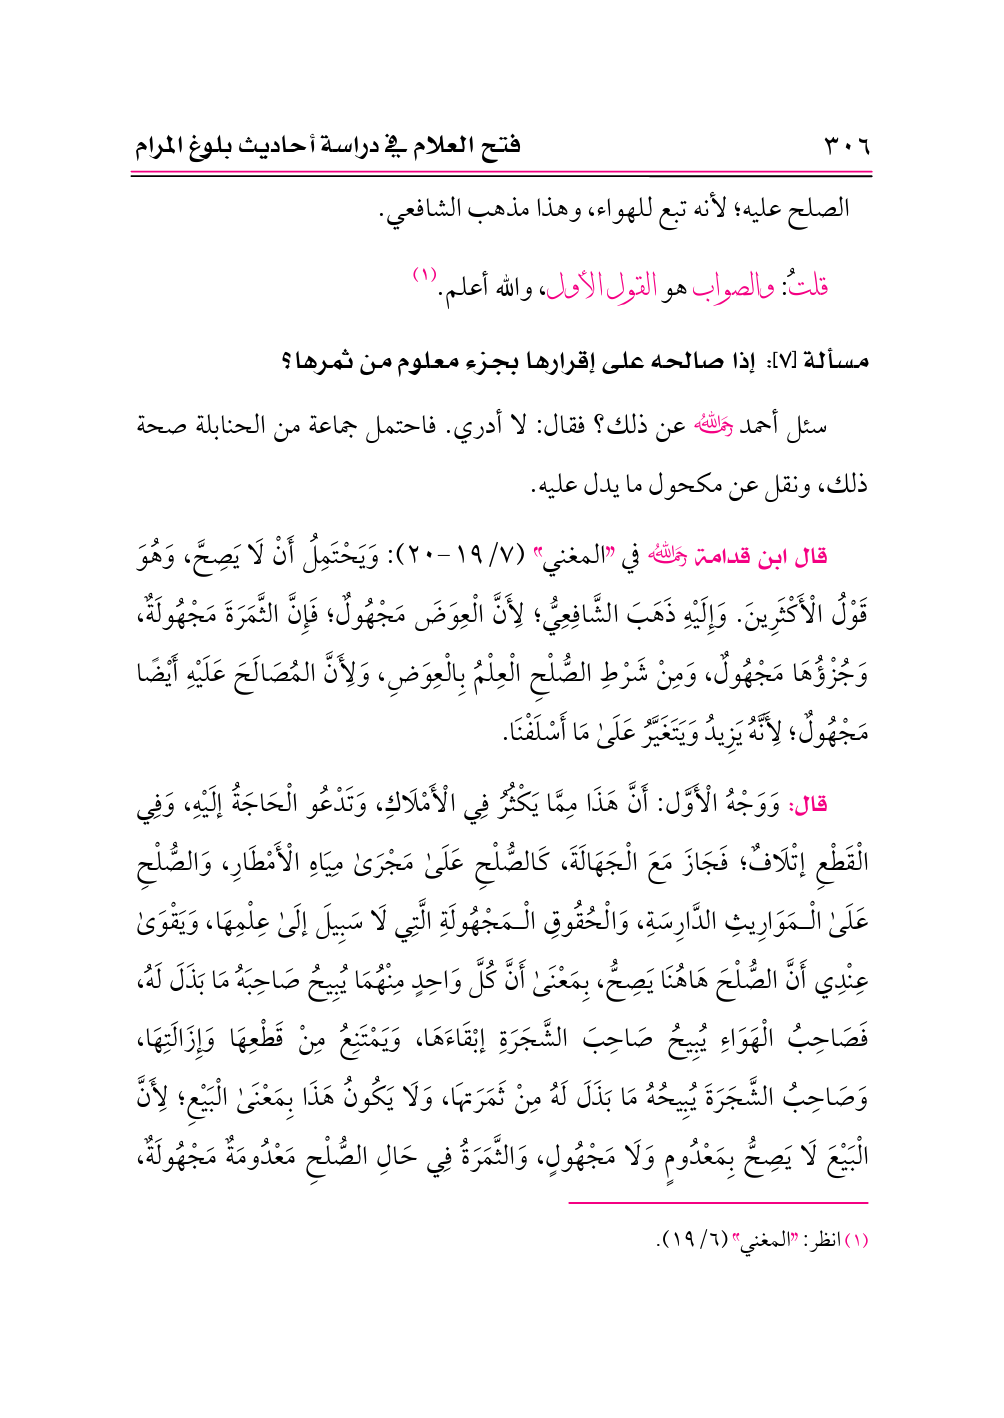 ٣٠٦ فتح العلام في دراسة أحاديث بلوغ المرام
الصلح عليه؛ لأنه تبع للهواء، وهذا مذهب الشافعي.
قلتُ: والصواب هو القول الأول، والله أعلم.(١)
مسألة [٧]: إذا صالحه على إقرارها بجزء معلوم من ثمرها؟
سئل أحمد رحمه الله عن ذلك؟ فقال: لا أدري. فاحتمل جماعة من الحنابلة صحة
ذلك، ونقل عن مكحول ما يدل عليه.
قال ابن قدامة رحمه الله في "المغني" (٧/ ١٩-٢٠): وَيَحْتَمِلُ أَنْ لَا يَصِحَّ، وَهُوَ
قَوْلُ الْأَكْثَرِينَ. وَإِلَيْهِ ذَهَبَ الشَّافِعِيُّ؛ لِأَنَّ الْعِوَضَ مَجْهُولٌ؛ فَإِنَّ الثَّمَرَةَ مَجْهُولَةٌ،
وَجُزْؤُهَا مَجْهُولٌ، وَمِنْ شَرْطِ الصُّلْحِ الْعِلْمُ بِالْعِوَضِ، وَلِأَنَّ المُصَالَحَ عَلَيْهِ أَيْضًا
مَجْهُولٌ؛ لِأَنَّهُ يَزِيدُ وَيَتَغَيَّرُ عَلَىٰ مَا أَسْلَفْنَا.
قال: وَوَجْهُ الْأَوَّل: أَنَّ هَذَا مِمَّا يَكْثُرُ فِي الْأَمْلَاكِ، وَتَدْعُو الْحَاجَةُ إلَيْهِ، وَفِي
الْقَطْعِ إتْلَافٌ؛ فَجَازَ مَعَ الْجَهَالَةَ، كَالصُّلْحِ عَلَىٰ مَجْرَىٰ مِيَاهِ الْأَمْطَارِ، وَالصُّلْحِ
عَلَىٰ الْـمَوَارِيثِ الدَّارِسَةِ، وَالْحُقُوقِ الْـمَجْهُولَةِ الَّتِي لَا سَبِيلَ إلَىٰ عِلْمِهَا، وَيَقْوَىٰ
عِنْدِي أَنَّ الصُّلْحَ هَاهُنَا يَصِحُّ، بِمَعْنَىٰ أَنَّ كُلَّ وَاحِدٍ مِنْهُمَا يُبِيحُ صَاحِبَهُ مَا بَذَلَ لَهُ،
فَصَاحِبُ الْهَوَاءِ يُبِيحُ صَاحِبَ الشَّجَرَةِ إبْقَاءَهَا، وَيَمْتَنِعُ مِنْ قَطْعِهَا وَإِزَالَتِهَا،
وَصَاحِبُ الشَّجَرَةَ يُبِيحُهُ مَا بَذَلَ لَهُ مِنْ ثَمَرَتهَا، وَلَا يَكُونُ هَذَا بِمَعْنَىٰ الْبَيْعِ؛ لِأَنَّ
الْبَيْعَ لَا يَصِحُّ بِمَعْدُومٍ وَلَا مَجْهُولٍ، وَالثَّمَرَةُ فِي حَالِ الصُّلْحِ مَعْدُومَةٌ مَجْهُولَةٌ،
(١) انظر: "المغني" (٦/ ١٩).